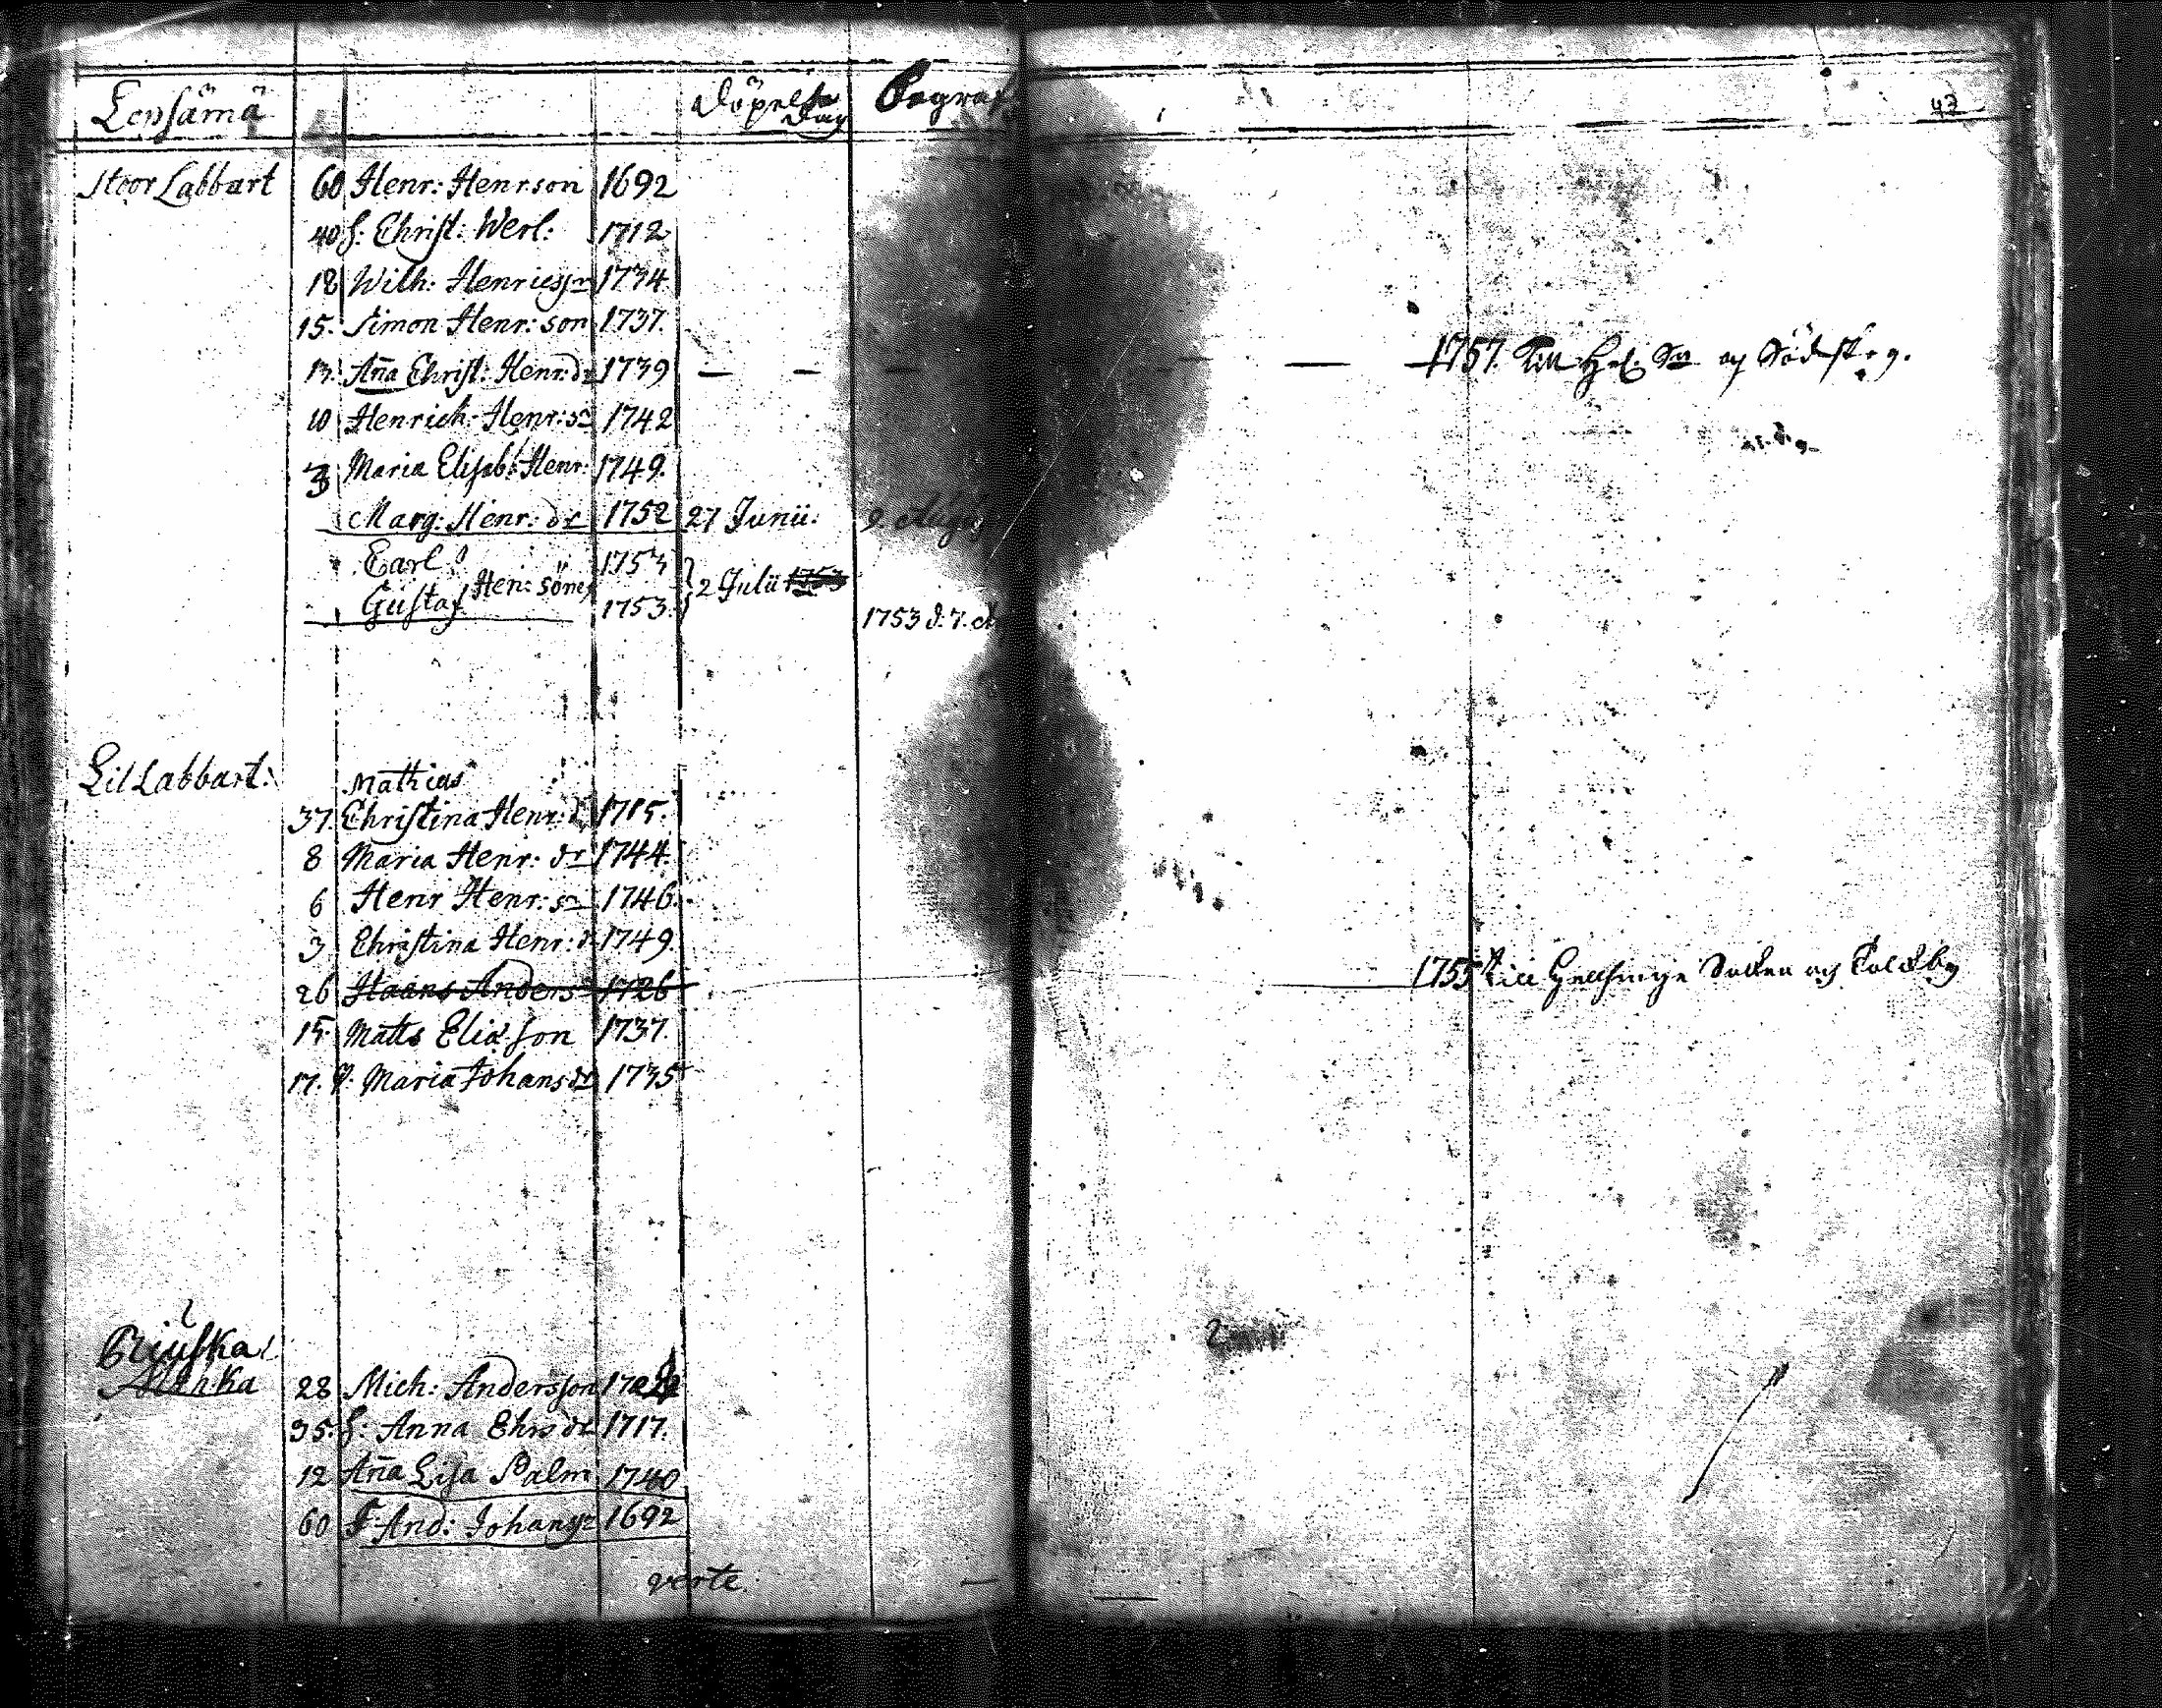 Lensämä Döpelse Dag Begraf 43
Stoor Labbart 60 Henr: Henrson 1692
40 h: Christ: Werl: 1712
18 Wilh: Henricss: 1734
15. Simon Henr: son 1737.
13. Aña Christ: Henr: dr 1739 — — — — 1757. Till
10 Henrich Henr: sn 1742
3 Maria Elisab: Henr: 1749.
Marg: Henr: dr 1752 27 Junii. 9. Aug
Carl 1753
Hen: söner 2 Julii 1753
Gustaf 1753. 1753 d. 7.
Lil Labbart:
Mathias
37. Christina Henr: d 1715.
8 Maria Henr: dr 1744.
6 Henr Henr: sn 1746.
3 Christina Henr: d 1749.
26 Haans Anders sn 1726 1755 till Hellsinge Socken och
15. Matts Elia son 1737.
17. P. Maria Johans dr 1735
28 Mich: Andersson
35. h: Anna Ehrs dr 1717.
12 Aña Lisa Palm 1740
60 F And: Johanss 1692
verte